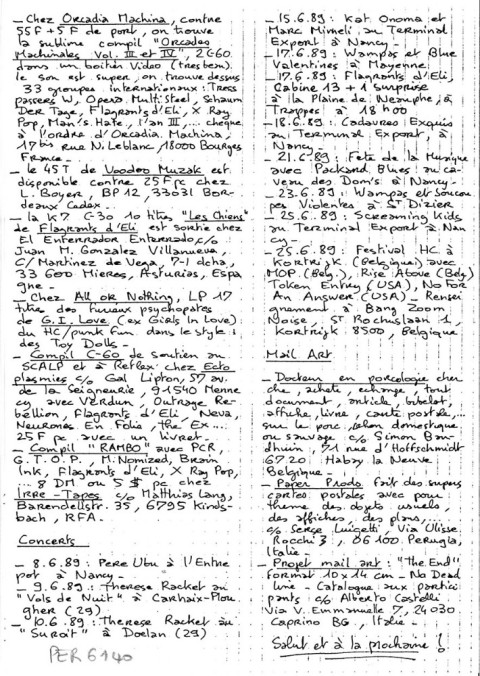 — Chez Orcadia Machina, contre
55F + 5F de port, on trouve
la sublime compil "Orcades
Machinales Vol. III et IV" 2C60
dans un boitier Video (très beau).
le son est super, on trouve dessus
33 groupes internationaux : Tress
passers W, Opera Multi Steel, Schaum
Der Tage, Flagrants d'Eli, X Ray
Pop, Man's Hate, l'an III ... chèque
à l'ordre d'Orcadia Machina,
17 bis rue N. Leblanc 18000 Bourges
France –
– le 45T de Voodoo Muzak est
disponible contre 25F pc chez
L. Boyer, BP 12, 33031 Bor-
deaux Cedex –
– la K7 C-30 10 titres "Les Chiens"
de Flagrants d'Eli est sortie chez
El Enterrador Enterrado c/o
Juan M. Gonzalez Villanueva,
C/ Martinez de Vega, 7-1 dcha,
33 600 Mieres, Asturias, Espa
gne –
– Chez All or Nothing, LP 17
titres des furieux psychopates
de G.I. Love (ex Girls In Love)
du HC/punk fun dans le style :
des Toy Dolls –
– Compil C-60 de soutien au
SCALP et à Reflex chez Ecto
plasmies c/o Gal Lipton, 57 av.
de la Seigneurie, 91540 Menne
cy avec Verdun, Outrage Re-
bellion, Flagrants d'Eli, Neva,
Neurones En Folie, the Ex....
25F pc avec un livret –
– Compil "RAMBO" avec PCR,
G.T.O.P., M. Nomized, Brain
Ink, Flagrants d'Eli, X Ray Pop,
... 8 DM ou 5 $ pc chez
Irre-Tapes c/o Matthias Lang,
Barendellstr. 35, 6795 Kinds-
bach, RFA.
Concerts
– 8.6.89 : Pere Ubu à l'Entre
pot à Nancy –
– 9.6.89 : Therese Racket au
"Vols de Nuit" à Carhaix-Plou
gher (29)
– 10.6.89 : Therese Racket au
"Suroit" à Doelan (29)
PER 6140
– 15.6.89 : Kat Onoma et
Marc Minelli au Terminal
Export à Nancy –
– 17.6.89 : Wampas et Blue
Valentines à Mayenne
– 17.6.89 : Flagrants d'Eli,
Cabine 13 + 1 surprise
à la Plaine de Neauphe, à
Trappes à 18h00
– 18.6.89 : Cadavres Exquis
au Terminal Export, à
Nancy –
– 21.6.89 : Fete de la Musique
avec Packard Blues au ca-
veau des Dom's à Nancy –
– 23.6.89 : Wampas et Soucou
pes Violentes à St Dizier
– 25.6.89 : Screaming Kids
au Terminal Export à Nan
cy –
– 25.6.89 : Festival HC à
Kortrijk (Belgique) avec
MOP (Belg.), Rise Above (Belg.)
Token Entry (USA), No For
An Answer (USA) – Rensei
gnement à Bang Zoom
Noise, St Rochuslaan 1,
Kortrijk 8500, Belgique.
Mail Art
– Docteur en porcologie cher
che, achète, échange, tout
document, article, bibelot,
affiche, livre, carte postale,...
sur le porc, selon domestique
ou sauvage c/o Simon Bau-
dhuin, 71 rue d'Hoffschmidt
6720 Habay la Neuve
Belgique –
– Paper Prods fait des supers
cartes postales avec pour
theme des objets usuels,
des affiches, des plans,
c/o Serge Luigetti Via Ulisse
Rocchi 3, 06100 Perugia,
Italie –
– Projet mail art : "The End"
format 10x14 cm – No Dead
line – Catalogue aux partici
pants c/o Alberto Castelli
Via V. Emmanuelle 7, 24030
Caprino BG, Italie –
Salut et à la prochaine !